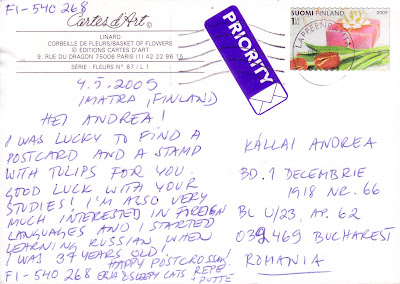 FI-540 268
Cartes d'Art
LINARD
CORBEILLE DE FLEURS/BASKET OF FLOWERS
© EDITIONS CARTES D'ART
9, RUE DU DRAGON 75006 PARIS (1) 42 22 86 15
SÉRIE : FLEURS N° 87 / L 1
4.5.2009
IMATRA, (FINLAND)
HEI ANDREA!
I WAS LUCKY TO FIND A
POSTCARD AND A STAMP
WITH TULIPS FOR YOU.
GOOD LUCK WITH YOUR
STUDIES! I'M ALSO VERY
MUCH INTERESTED IN FOREIGN
LANGUAGES AND I STARTED
LEARNING RUSSIAN WHEN
I WAS 37 YEARS OLD!
HAPPY POSTCROSSING!
FI-540 268 & 2 SLEEPY CATS REPE
& PUTTE
PRIORITY
SUOMI FINLAND
1
2009
LAPPEENRANTA
KÁLLAI ANDREA
BD. 1 DECEMBRIE
1918 NR. 66
BL U/23, AP. 62
032469 BUCHAREST
ROMANIA